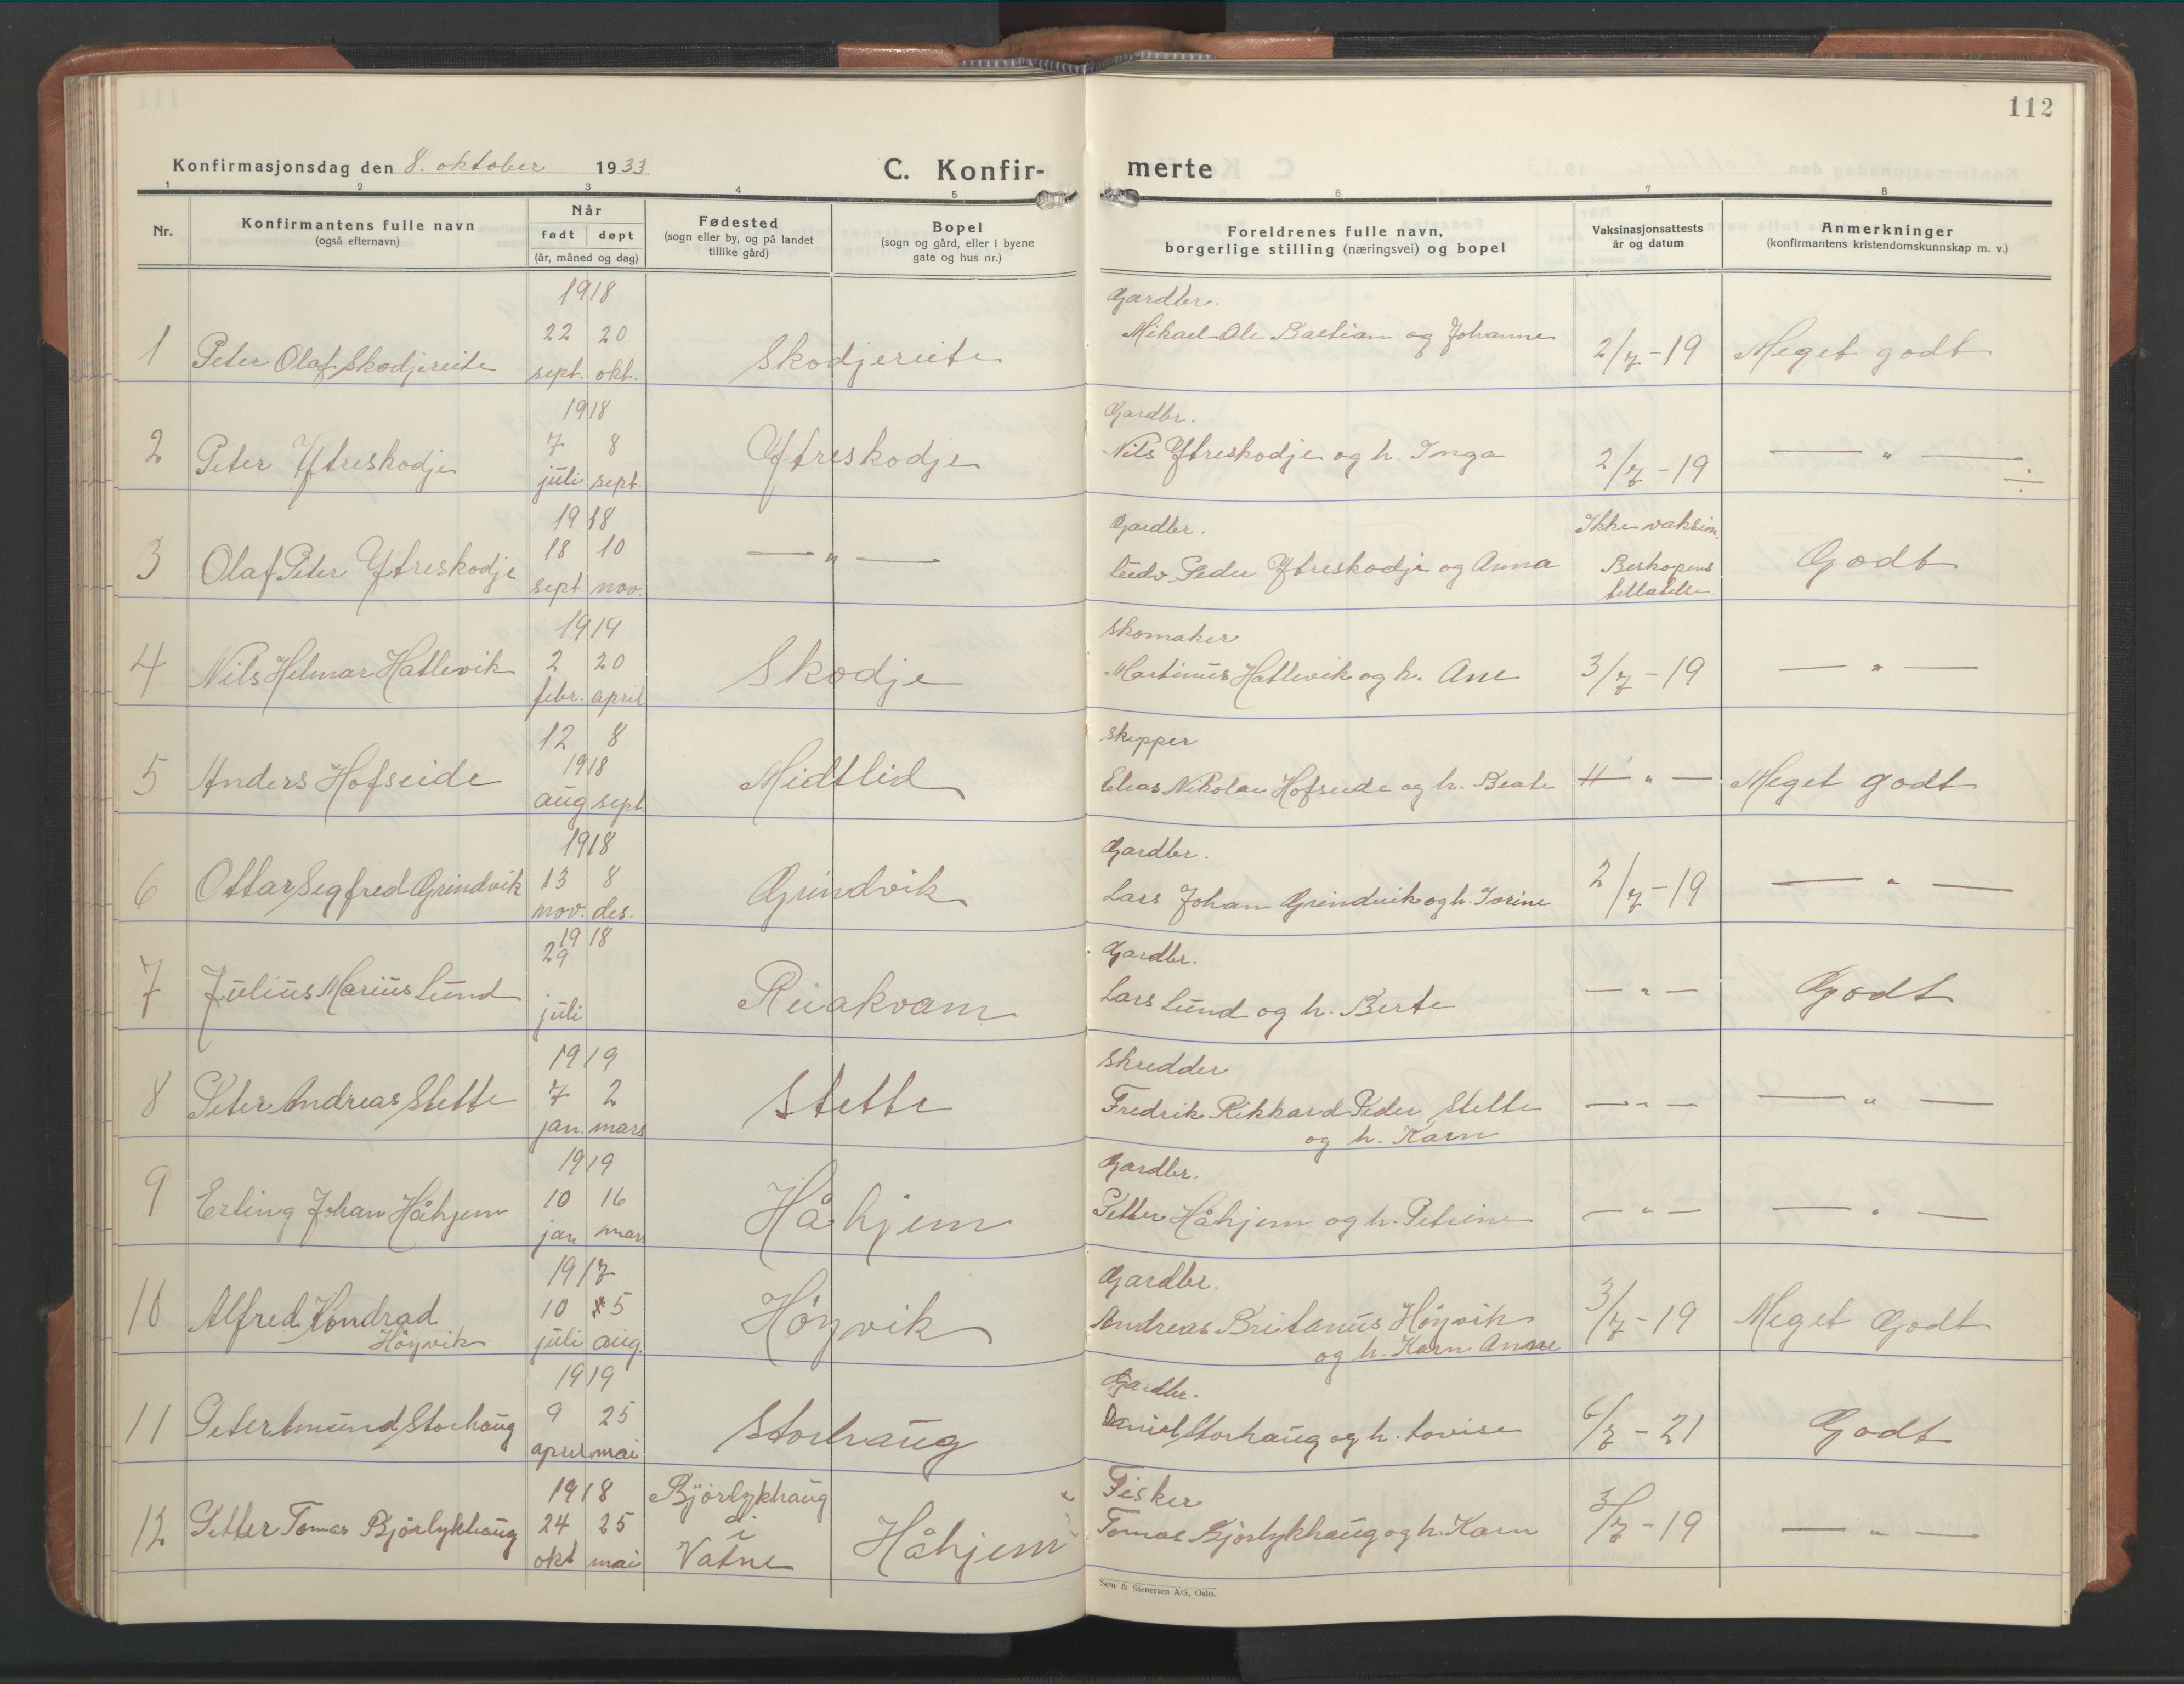 112
Konfirmasjonsdag den 8. oktober 1933
C. Konfir-
merte
1 2 3 4 5 6 7 8
Nr.
Konfirmantens fulle navn
(også efternavn)
Når
født døpt
(år, måned og dag)
Fødested
(sogn eller by, og på landet
tillike gård)
Bopel
(sogn og gård, eller i byene
gate og hus nr.)
Foreldrenes fulle navn,
borgerlige stilling (næringsvei) og bopel
Vaksinasjonsattests
år og datum
Anmerkninger
(konfirmantens kristendomskunnskap m. v.)
1918
Gardbr.
1 Peter Olaf Skodjereite 22 sept. 20 okt. Skodjereite Mikael Ole Bastian og Johanne 2/7-19 Meget godt
1918
Gardbr.
2 Peter Ytreskodje 7 juli 8 sept. Ytreskodje Nils Ytreskodje og h. Inga 2/7-19 — " — ÷
1918
Gardbr. Ikke vaksin.
3 Olaf Peter Ytreskodje 18 sept. 10 nov. — " — Peder Ytreskodje og Anna Beskopens Godt
tillatelse.
1919
Skomaker
4 Nils Helmar Hatlevik 2 febr. 20 april Skodje Martinus Hatlevik og h. Ane 3/7-19 — " —
Skipper
1918
5 Anders Hofseide 12 aug 8 sept Midtlid Elias Nikolai Hofseide og h. Beate — " — Meget godt
1918
Gardbr.
6 Ottar Segfred Grindvik 13 nov. 8 des. Grindvik Lars Johan Grindvik og h. Torine 2/7-19 — " —
1918
Gardbr.
7 Julius Marius Lund 29 juli Reiakvam Lars Lund og h. Berte — " — Godt
1919
Skredder
8 Peter Andreas Stette 7 jan. 2 mars Stette Fredrik Rikkard Peder Stette — " — — " —
og h. Karn
1919
Gardbr.
9 Erling Johan Håhjem 10 jan 16 mars Håhjem Petter Håhjem og h. Petrine — " — — " —
1917
Gardbr.
10 Alfred Kondrad 10 juli 5 aug. Höyvik Andreas Britanus Höyvik 3/7-19 Meget Godt
Höyvik og h. Karn Anne
1919
Gardbr.
11 Peter Amund Storhaug 9 april 25 mai Storhaug Daniel Storhaug og h. Lovise 6/7-21 Godt
1918 Björlykhaug
Fisker
12 Petter Tomas Björlykhaug 24 okt 25 mai i Vatne Håhjem Tomas Björlykhaug og h. Karn 3/7-19 — " —
Sem & Stenersen A/S, Oslo.